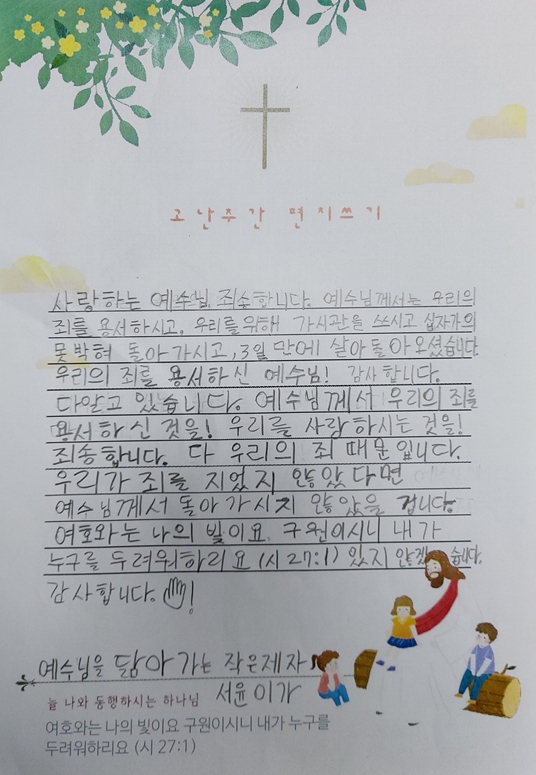 고난주간 편지쓰기
사랑하는 예수님, 죄송합니다. 예수님께서는 우리의
죄를 용서하시고, 우리를위해 가시관을 쓰시고 십자가의
못박혀 돌아가시고, 3일 만에 살아돌아오셨습니다
우리의 죄를 용서하신 예수님! 감사합니다.
다알고 있습니다. 예수님께서 우리의 죄를
용서하신 것을! 우리를 사랑하시는 것을!
죄송합니다. 다 우리의 죄 때문입니다.
우리가 죄를 지었지 않았다면
예수님께서 돌아가시지 않았을 겁니다.
여호와는 나의 빛이요 구원이시니 내가
누구를 두려워하리요 (시 27:1) 있지 않겠습니다.
감사합니다. !
예수님을 닮아가는 작은제자
늘 나와 동행하시는 하나님 서윤이가
여호와는 나의 빛이요 구원이시니 내가 누구를
두려워하리요 (시 27:1)